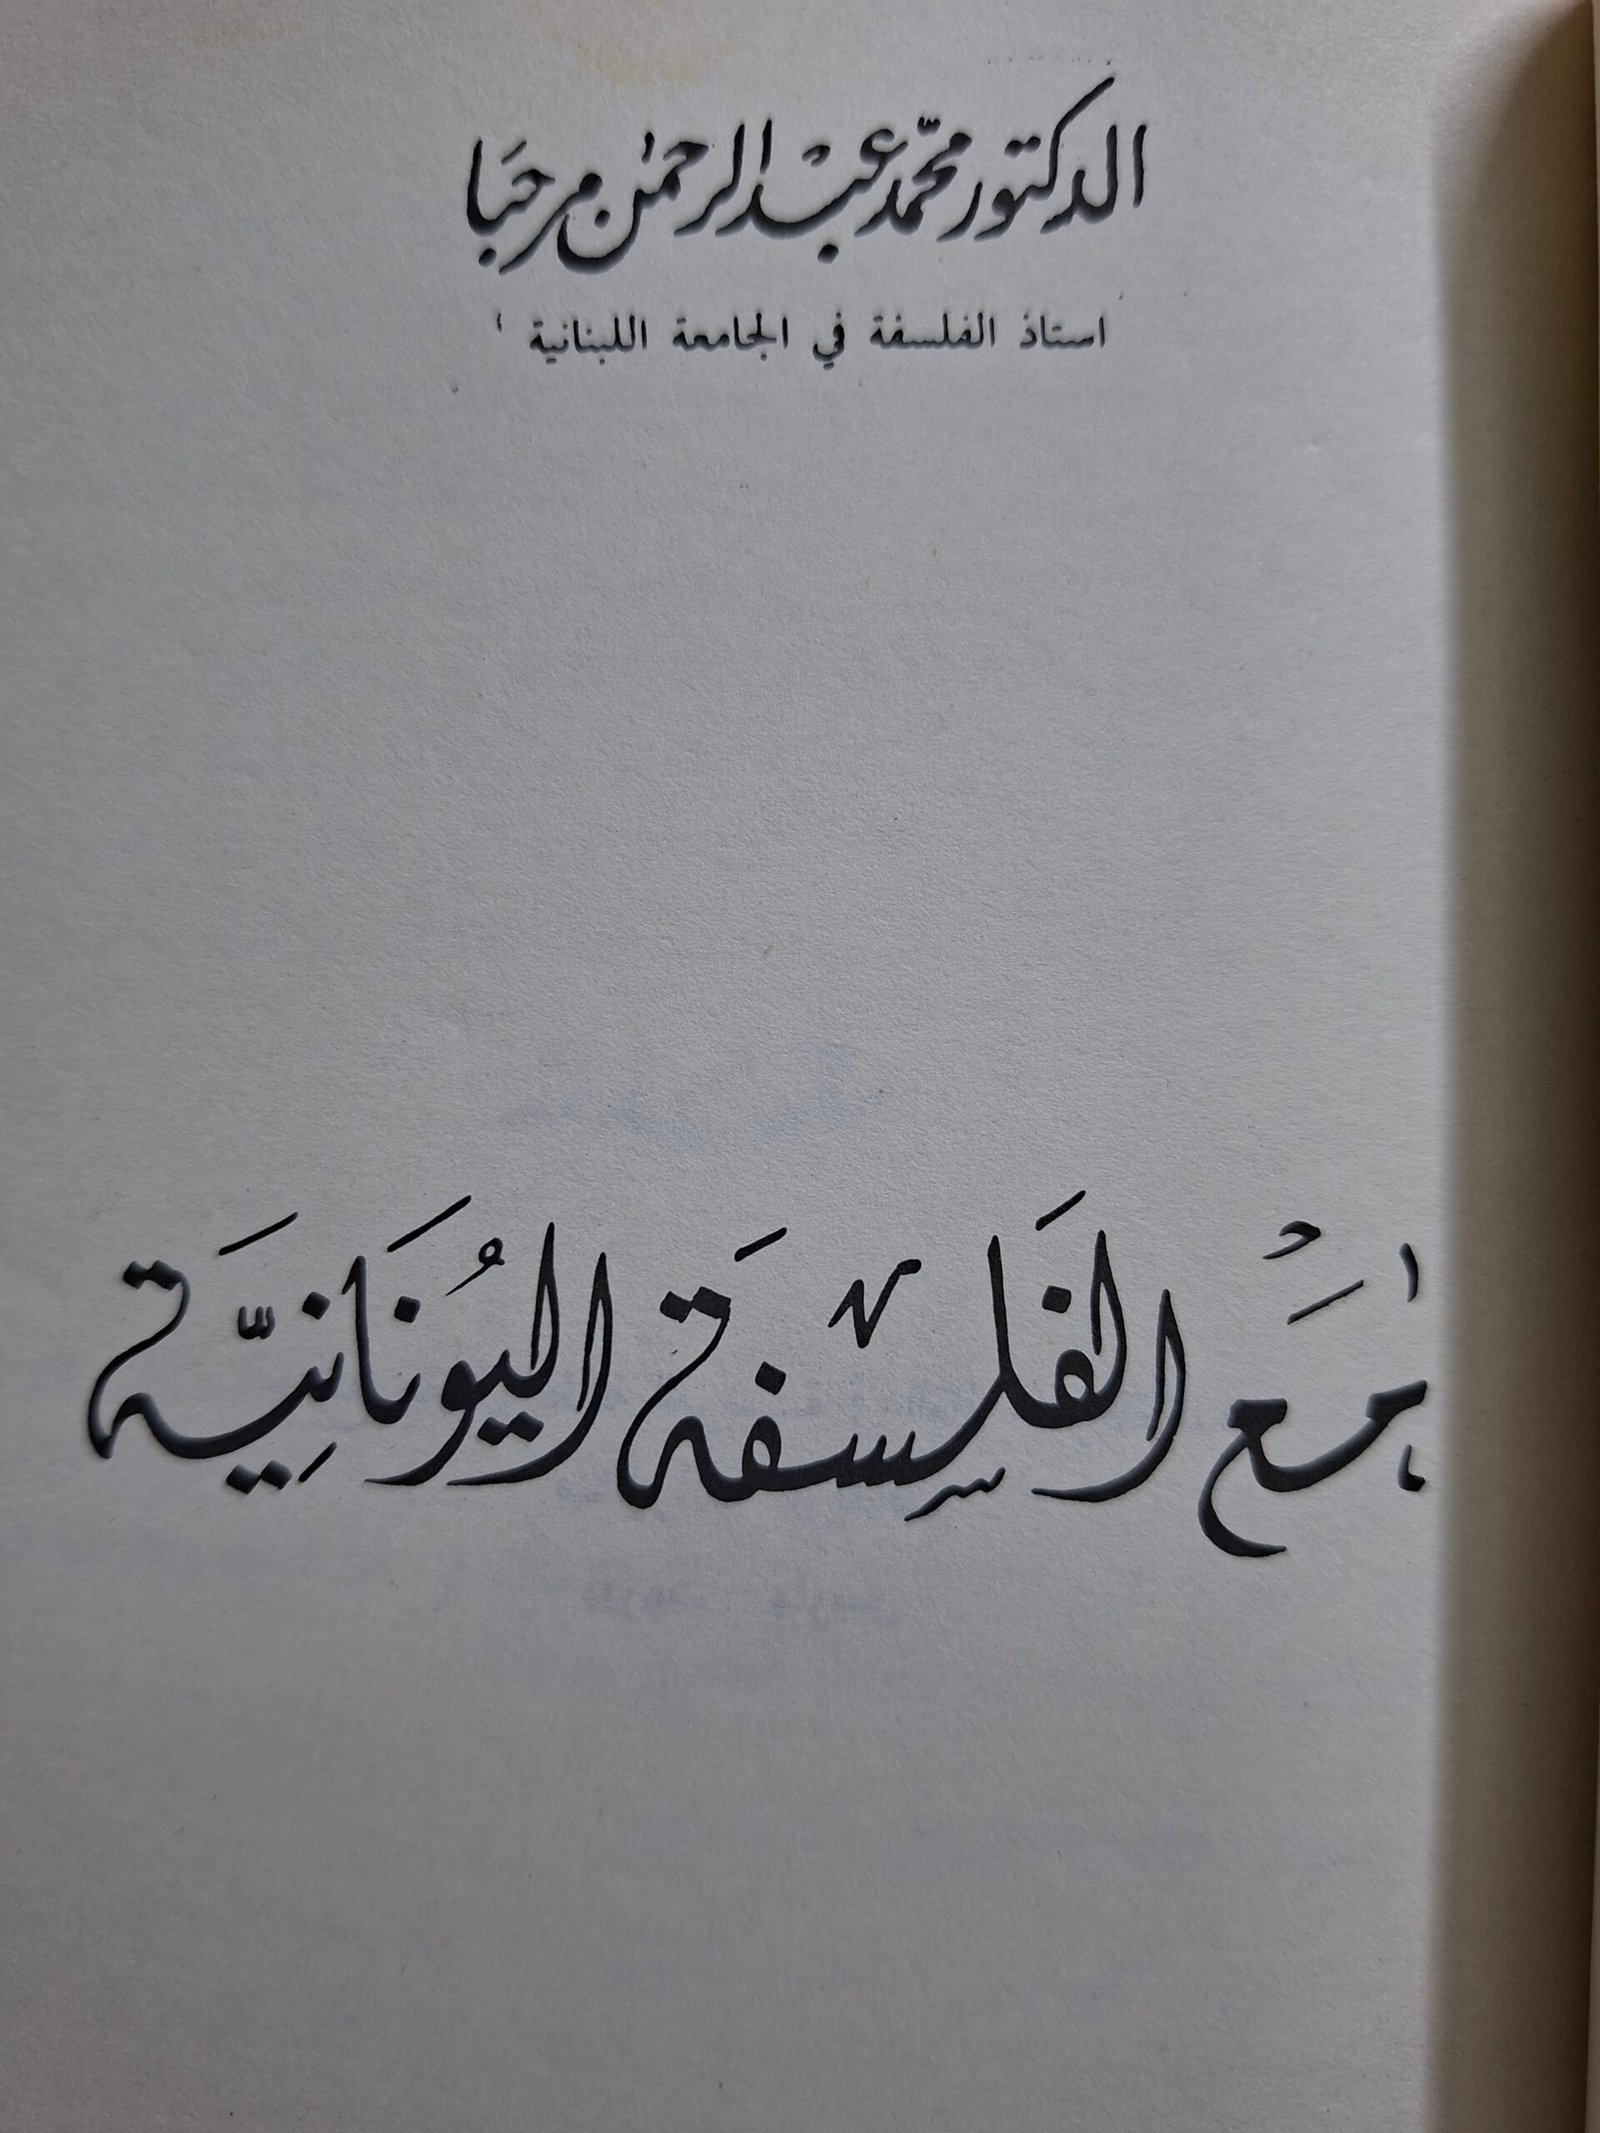 الدكتور محمّد عبْد الرحمٰن مرحَبَا
استاذ الفلسفة في الجامعة اللبنانية
مَع الفَلسَفَة اليُونَانِيَّة